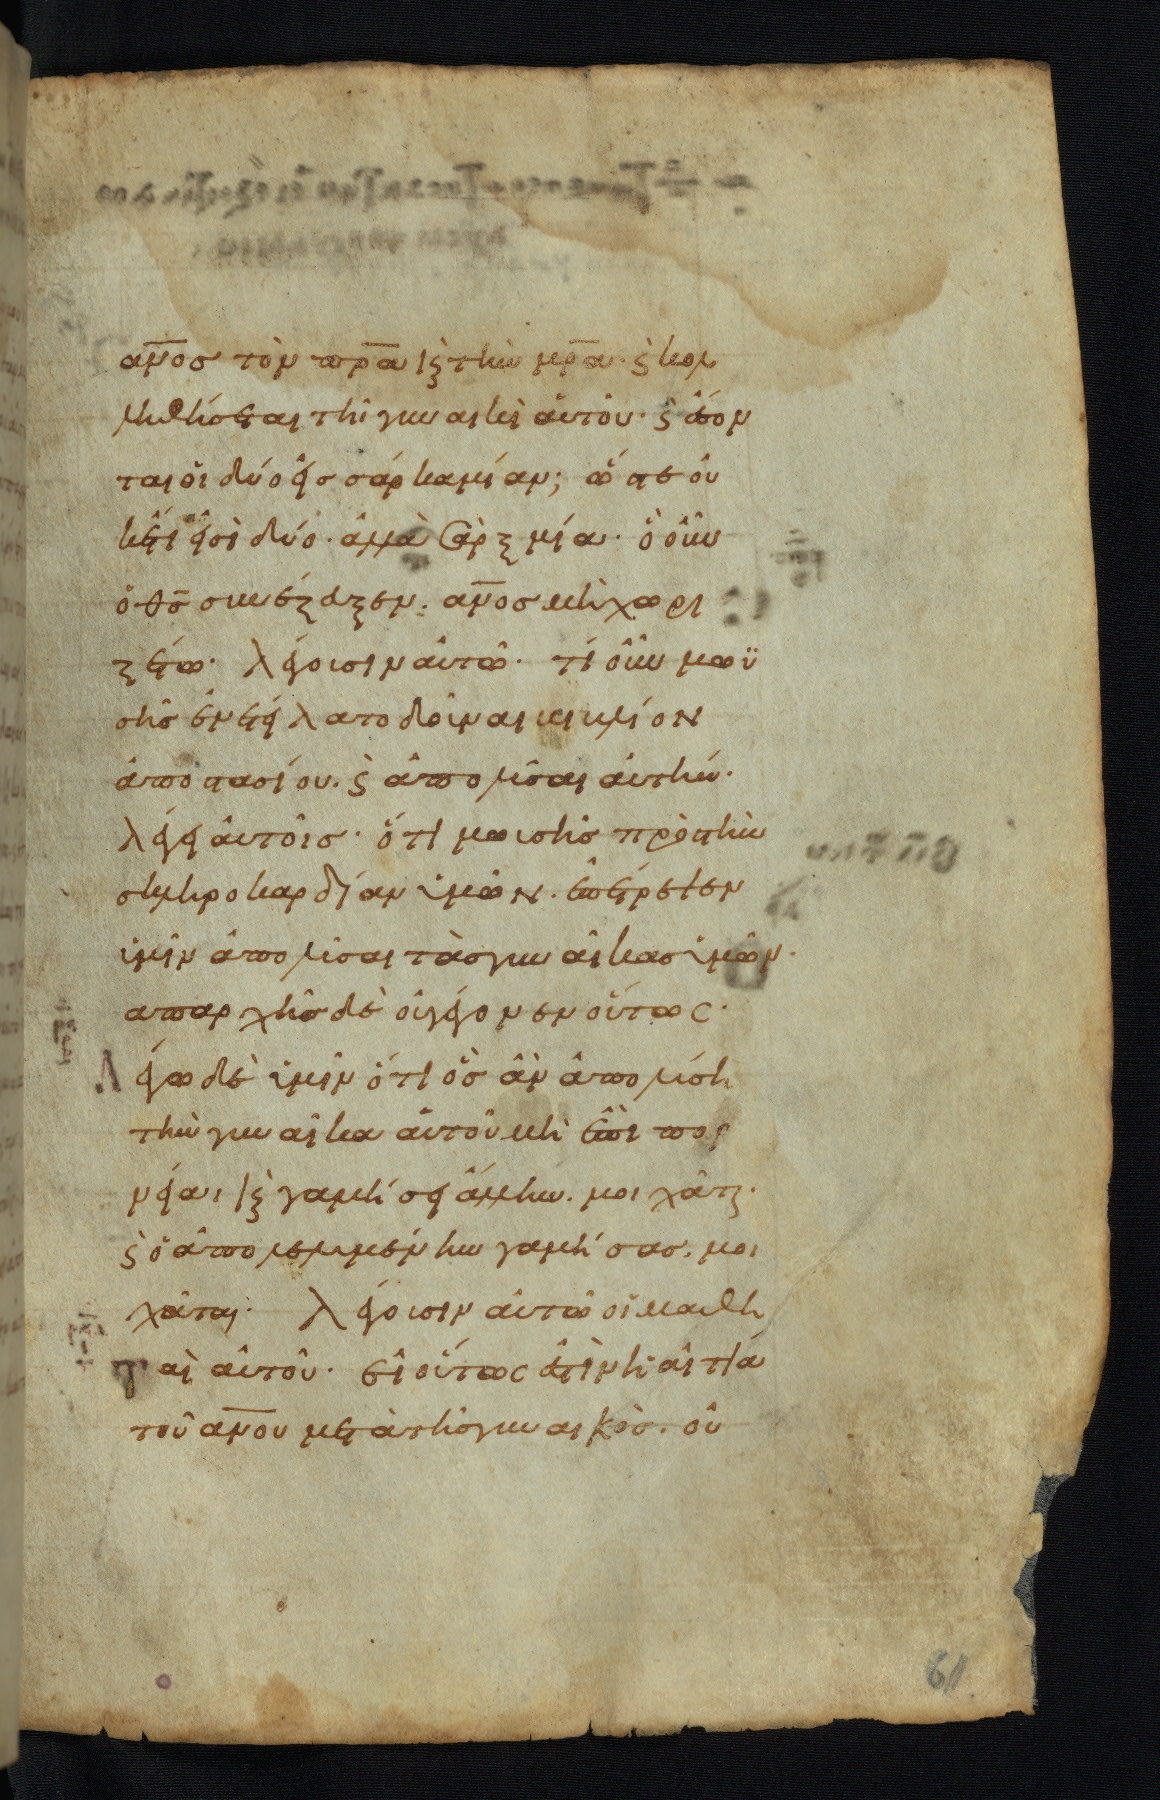 α̅ν̅ο̅σ τὸν π̅ρ̅α̅ κ̣ τὴν μ̅ρ̅α̅· ϛ κολ
ληθήσεται τῆ γυναικὶ αὐτοῦ· ϛ ἔσον
ται οἱ δύο εἰς σάρκα μίαν; ὥστε οὐ
κέτι εἰσὶ δύο· ἀλλὰ σὰρξ μία· ὃ οὖν
ὁ θ̅ς̅ συνέζευξεν· α̅ν̅ο̅σ μὴ χωρι
ζέτω· λέγουσιν αὐτῶ· τί οὖν μωϋ
σῆς ἐνετείλατο δοῦναι βιβλίον
ἀποστασίου· ϛ ἀπολῦσαι αὐτήν·
λέγει αὐτοῖς· ὅτι μωυσῆς πρὸς τὴν
σκληροκαρδίαν ὑμῶν· ἐπέτρεψεν
ὑμῖν ἀπολῦσαι τὰς γυναῖκας ὑμῶν·
ἀπαρχῆς δὲ οὐ γέγονεν οὕτως·
Λέγω δὲ ὑμῖν ὅτι ὃς ἂν ἀπολύση
τὴν γυναῖκα αὐτοῦ μὴ ἐπὶ πορ
νεία· κ̣ γαμήσει ἄλλην· μοιχᾶται·
ϛ ὁ ἀπολελυμένην γαμήσας· μοι
χᾶται· λέγουσιν αὐτῶ οἱ μαθη
ταὶ αὐτοῦ· εἰ οὕτως ἐστὶν ἡ αἰτία
τοῦ α̅ν̅ο̅υ μετὰ τῆς γυναικός· οὐ
61